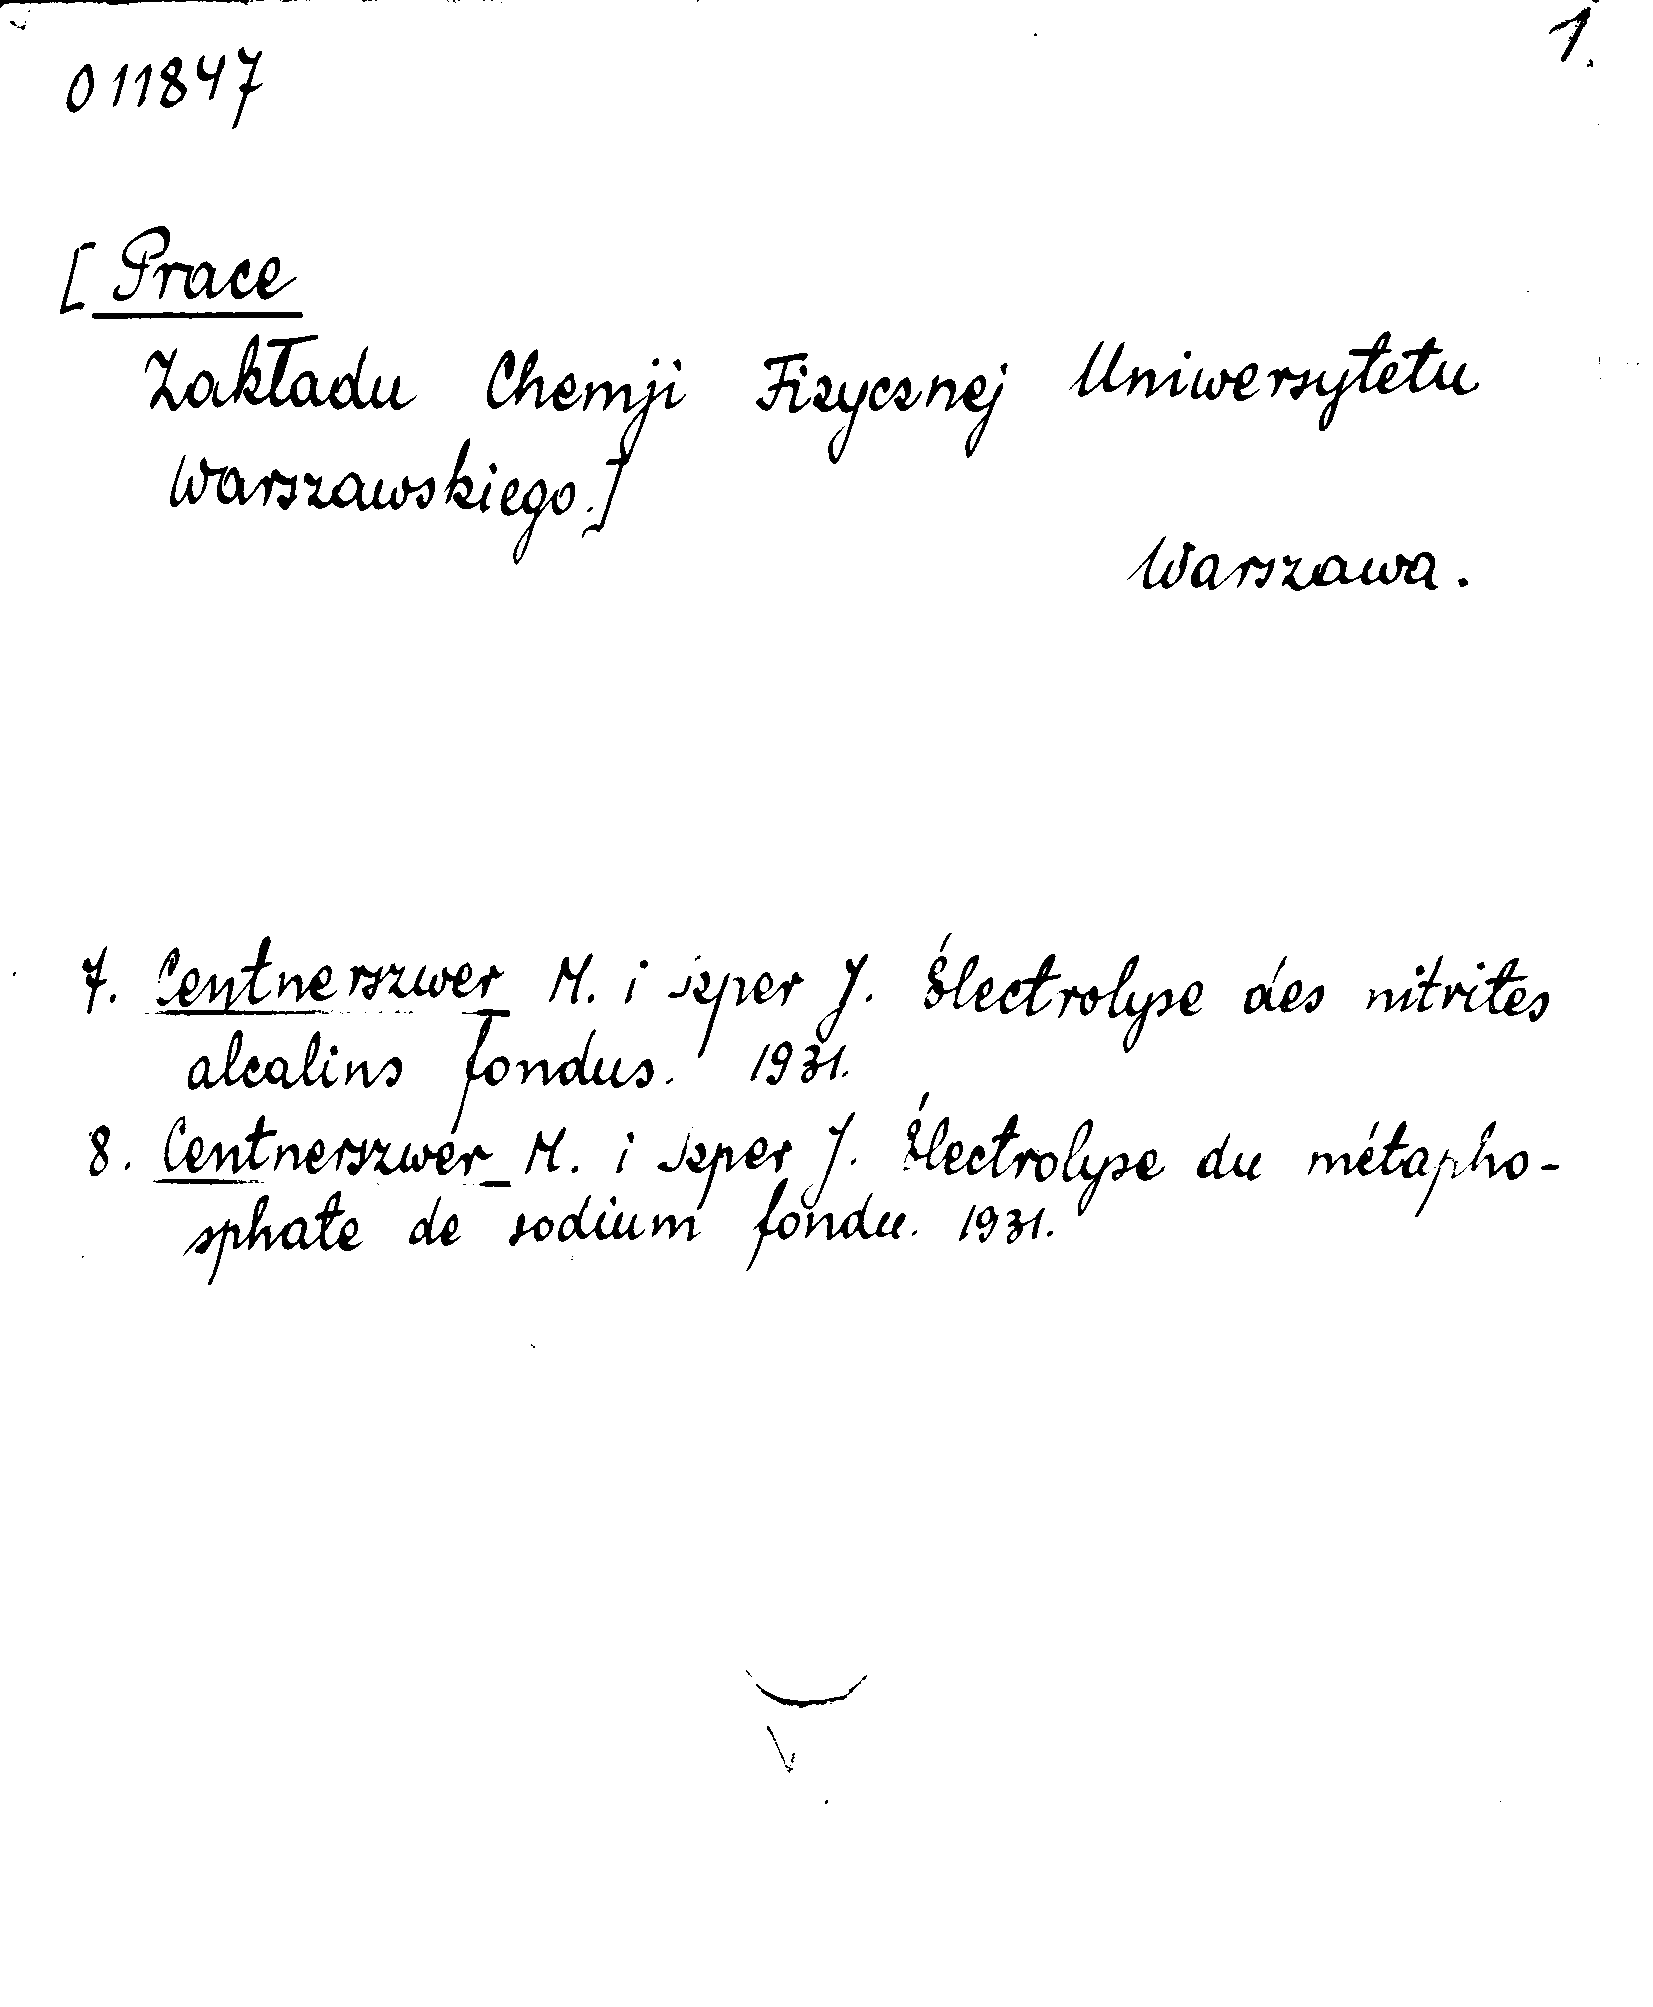 1.
011847
[Prace
Zakładu Chemji Fizycznej Uniwersytetu
Warszawskiego.]
Warszawa.
7. Centnerszwer M. i Szper J. Électrolyse des nitrites
alcalins fondus. 1931.
8. Centnerszwer M. i Szper J. Électrolyse du métapho-
sphate de sodium fondu. 1931.